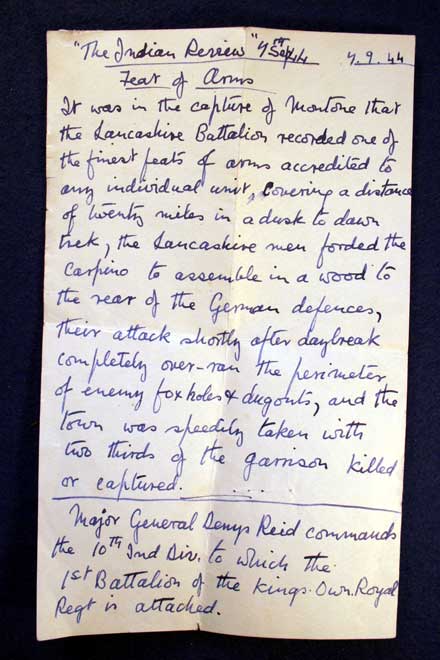 "The Indian Review" 7th Sep/44 7.9.44
Feat of Arms
It was in the capture of Montone that
the Lancashire Battalion recorded one of
the finest feats of arms accredited to
any individual unit, covering a distance
of twenty miles in a dusk to dawn
trek, the Lancashire men forded the
Carpino to assemble in a wood to
the rear of the German defences,
their attack shortly after daybreak
completely over-ran the perimeter
of enemy fox holes & dugouts, and the
town was speedily taken with
two thirds of the garrison killed
or captured. . . .
Major General Denys Reid commands
the 10th Ind Div. to which the
1st Battalion of the Kings. Own. Royal
Regt is attached.